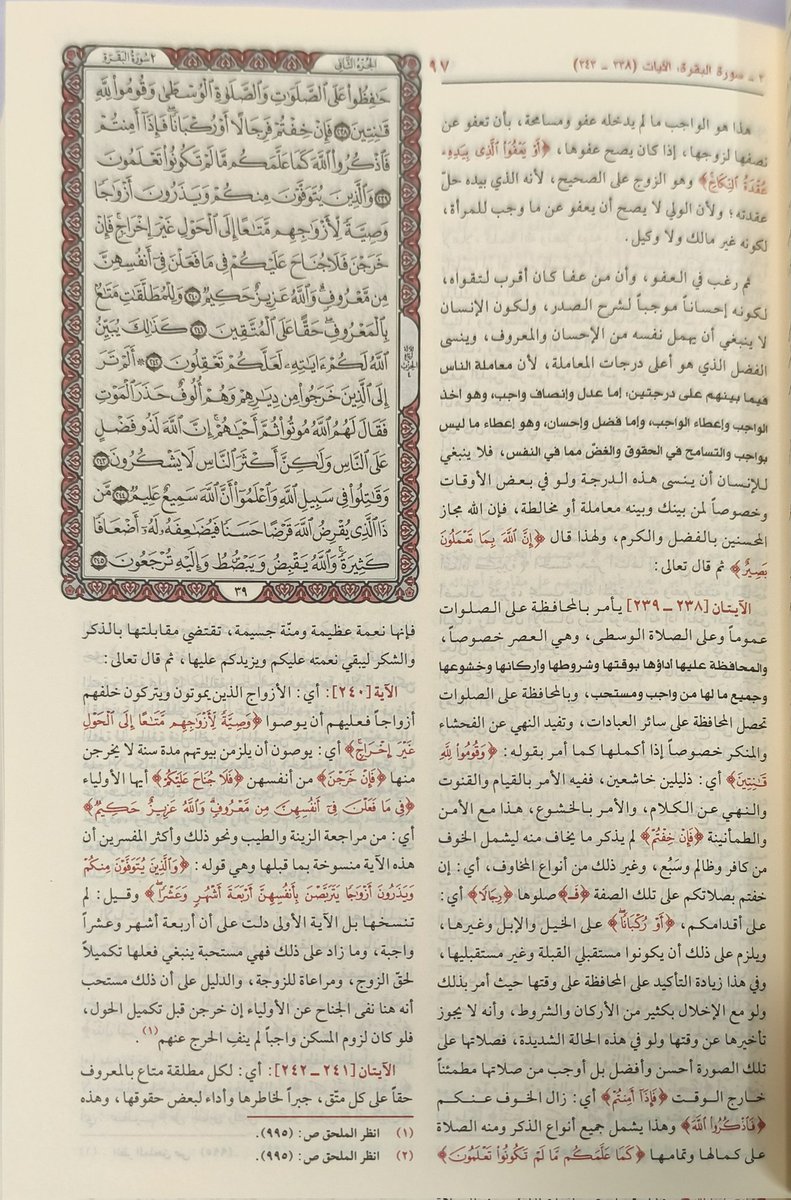 ٢ - سورة البقرة، الآيات (٢٣٨ - ٢٤٣)
٩٧
هذا هو الواجب ما لم يدخله عفو ومسامحة، بأن تعفو عن
نصفها لزوجها، إذا كان يصح عفوها، ﴿أَوْ يَعْفُوَا۟ ٱلَّذِى بِيَدِهِۦ
عُقْدَةُ ٱلنِّكَاحِ﴾ وهو الزوج على الصحيح، لأنه الذي بيده حلّ
عقدته؛ ولأن الولي لا يصح أن يعفو عن ما وجب للمرأة،
لكونه غير مالك ولا وكيل.
ثم رغب في العفو، وأن من عفا كان أقرب لتقواه،
لكونه إحساناً موجباً لشرح الصدر، ولكون الإنسان
لا ينبغي أن يهمل نفسه من الإحسان والمعروف، وينسى
الفضل الذي هو أعلى درجات المعاملة، لأن معاملة الناس
فيما بينهم على درجتين: إما عدل وإنصاف واجب، وهو أخذ
الواجب وإعطاء الواجب، وإما فضل وإحسان، وهو إعطاء ما ليس
بواجب والتسامح في الحقوق والغضّ مما في النفس، فلا ينبغي
للإنسان أن ينسى هذه الدرجة ولو في بعض الأوقات
وخصوصاً لمن بينك وبينه معاملة أو مخالطة، فإن الله مجاز
المحسنين بالفضل والكرم، ولهذا قال ﴿إِنَّ ٱللَّهَ بِمَا تَعْمَلُونَ
بَصِيرٌ﴾ ثم قال تعالى:
الآيتان [٢٣٨ - ٢٣٩] يأمر بالمحافظة على الصلوات
عموماً وعلى الصلاة الوسطى، وهي العصر خصوصاً،
والمحافظة عليها أداؤها بوقتها وشروطها وأركانها وخشوعها
وجميع ما لها من واجب ومستحب، وبالمحافظة على الصلوات
تحصل المحافظة على سائر العبادات، وتفيد النهي عن الفحشاء
والمنكر خصوصاً إذا أكملها كما أمر بقوله: ﴿وَقُومُوا۟ لِلَّهِ
قَـٰنِتِينَ﴾ أي: ذليلين خاشعين، ففيه الأمر بالقيام والقنوت
والنهي عن الكلام، والأمر بالخشوع، هذا مع الأمن
والطمأنينة ﴿فَإِنْ خِفْتُمْ﴾ لم يذكر ما يخاف منه ليشمل الخوف
من كافر وظالم وسَبُع، وغير ذلك من أنواع المخاوف، أي: إن
خفتم بصلاتكم على تلك الصفة ﴿فَـ﴾ صلوها ﴿رِجَالًا﴾ أي:
على أقدامكم، ﴿أَوْ رُكْبَانًا﴾ على الخيل والإبل وغيرها،
ويلزم على ذلك أن يكونوا مستقبلي القبلة وغير مستقبليها،
وفي هذا زيادة التأكيد على المحافظة على وقتها حيث أمر بذلك
ولو مع الإخلال بكثير من الأركان والشروط، وأنه لا يجوز
تأخيرها عن وقتها ولو في هذه الحالة الشديدة، فصلاتها على
تلك الصورة أحسن وأفضل بل أوجب من صلاتها مطمئناً
خارج الوقت ﴿فَإِذَا أَمِنتُمْ﴾ أي: زال الخوف عنكم
﴿فَٱذْكُرُوا۟ ٱللَّهَ﴾ وهذا يشمل جميع أنواع الذكر ومنه الصلاة
على كمالها وتمامها ﴿كَمَا عَلَّمَكُم مَّا لَمْ تَكُونُوا۟ تَعْلَمُونَ﴾
الجزء الثاني
٢ سورة البقرة
حَـٰفِظُوا۟ عَلَى ٱلصَّلَوَٰتِ وَٱلصَّلَوٰةِ ٱلْوُسْطَىٰ وَقُومُوا۟ لِلَّهِ
قَـٰنِتِينَ ٢٣٨ فَإِنْ خِفْتُمْ فَرِجَالًا أَوْ رُكْبَانًا فَإِذَآ أَمِنتُمْ
فَٱذْكُرُوا۟ ٱللَّهَ كَمَا عَلَّمَكُم مَّا لَمْ تَكُونُوا۟ تَعْلَمُونَ
٢٣٩ وَٱلَّذِينَ يُتَوَفَّوْنَ مِنكُمْ وَيَذَرُونَ أَزْوَٰجًا
وَصِيَّةً لِّأَزْوَٰجِهِم مَّتَـٰعًا إِلَى ٱلْحَوْلِ غَيْرَ إِخْرَاجٍ فَإِنْ
خَرَجْنَ فَلَا جُنَاحَ عَلَيْكُمْ فِى مَا فَعَلْنَ فِىٓ أَنفُسِهِنَّ
مِن مَّعْرُوفٍ وَٱللَّهُ عَزِيزٌ حَكِيمٌ ٢٤٠ وَلِلْمُطَلَّقَـٰتِ مَتَـٰعٌۢ
بِٱلْمَعْرُوفِ حَقًّا عَلَى ٱلْمُتَّقِينَ ٢٤١ كَذَٰلِكَ يُبَيِّنُ
ٱللَّهُ لَكُمْ ءَايَـٰتِهِۦ لَعَلَّكُمْ تَعْقِلُونَ ٢٤٢ ۞ أَلَمْ تَرَ
إِلَى ٱلَّذِينَ خَرَجُوا۟ مِن دِيَـٰرِهِمْ وَهُمْ أُلُوفٌ حَذَرَ ٱلْمَوْتِ
فَقَالَ لَهُمُ ٱللَّهُ مُوتُوا۟ ثُمَّ أَحْيَـٰهُمْ إِنَّ ٱللَّهَ لَذُو فَضْلٍ
عَلَى ٱلنَّاسِ وَلَـٰكِنَّ أَكْثَرَ ٱلنَّاسِ لَا يَشْكُرُونَ ٢٤٣
وَقَـٰتِلُوا۟ فِى سَبِيلِ ٱللَّهِ وَٱعْلَمُوٓا۟ أَنَّ ٱللَّهَ سَمِيعٌ عَلِيمٌ ٢٤٤ مَّن
ذَا ٱلَّذِى يُقْرِضُ ٱللَّهَ قَرْضًا حَسَنًا فَيُضَـٰعِفَهُۥ لَهُۥٓ أَضْعَافًا
كَثِيرَةً وَٱللَّهُ يَقْبِضُ وَيَبْصُۜطُ وَإِلَيْهِ تُرْجَعُونَ ٢٤٥
٣٩
فإنها نعمة عظيمة ومنّة جسيمة، تقتضي مقابلتها بالذكر
والشكر ليبقي نعمته عليكم ويزيدكم عليها، ثم قال تعالى:
الآية [٢٤٠]: أي: الأزواج الذين يموتون ويتركون خلفهم
أزواجاً فعليهم أن يوصوا ﴿وَصِيَّةً لِّأَزْوَٰجِهِم مَّتَـٰعًا إِلَى ٱلْحَوْلِ
غَيْرَ إِخْرَاجٍ﴾ أي: يوصون أن يلزمن بيوتهم مدة سنة لا يخرجن
منها ﴿فَإِنْ خَرَجْنَ﴾ من أنفسهن ﴿فَلَا جُنَاحَ عَلَيْكُمْ﴾ أيها الأولياء
﴿فِى مَا فَعَلْنَ فِىٓ أَنفُسِهِنَّ مِن مَّعْرُوفٍ وَٱللَّهُ عَزِيزٌ حَكِيمٌ﴾
أي: من مراجعة الزينة والطيب ونحو ذلك وأكثر المفسرين أن
هذه الآية منسوخة بما قبلها وهي قوله: ﴿وَٱلَّذِينَ يُتَوَفَّوْنَ مِنكُمْ
وَيَذَرُونَ أَزْوَٰجًا يَتَرَبَّصْنَ بِأَنفُسِهِنَّ أَرْبَعَةَ أَشْهُرٍ وَعَشْرًا﴾ وقيل: لم
تنسخها بل الآية الأولى دلت على أن أربعة أشهر وعشراً
واجبة، وما زاد على ذلك فهي مستحبة ينبغي فعلها تكميلاً
لحقّ الزوج، ومراعاة للزوجة، والدليل على أن ذلك مستحب
أنه هنا نفى الجناح عن الأولياء إن خرجن قبل تكميل الحول،
فلو كان لزوم المسكن واجباً لم ينفِ الحرج عنهم(١).
الآيتان [٢٤١ - ٢٤٢]: أي: لكل مطلقة متاع بالمعروف
حقاً على كل متّق، جبراً لخاطرها وأداء لبعض حقوقها، وهذه
(١) انظر الملحق ص: (٩٩٥).
(٢) انظر الملحق ص: (٩٩٥).